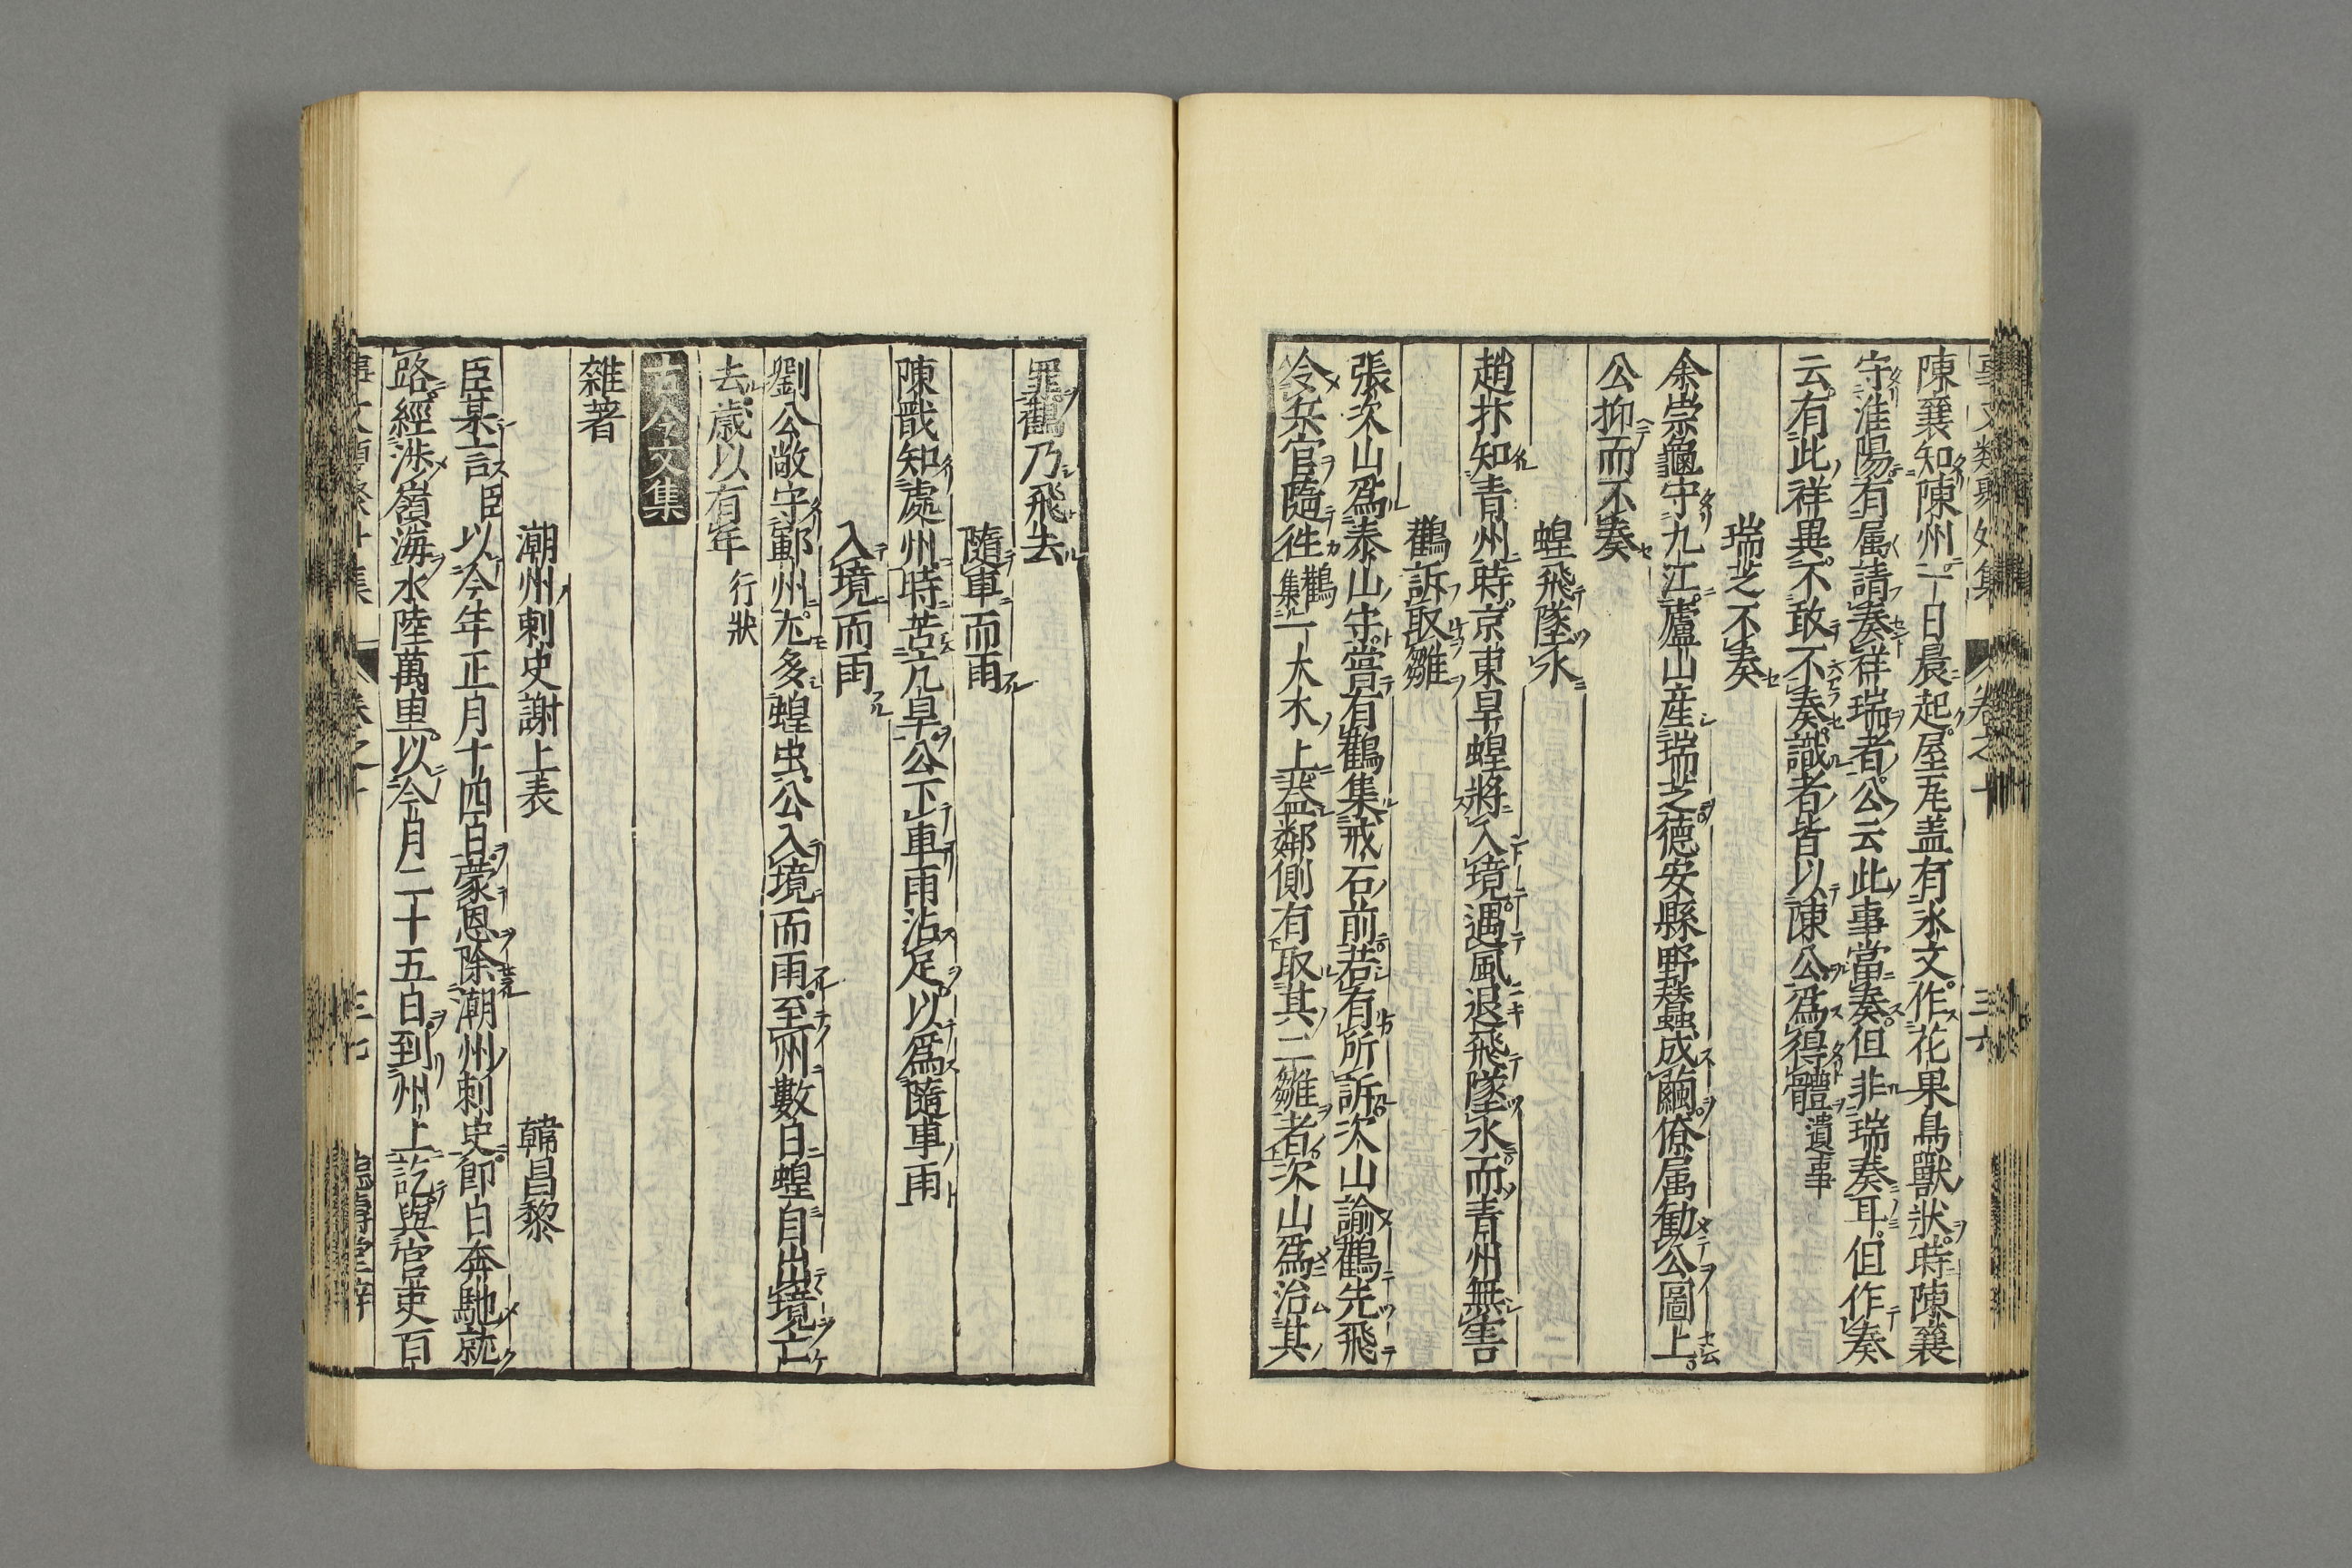 陳襄知陳州一日晨起屋瓦盖有氷文作花果鳥獸狀時陳襄
守淮陽有属請奏祥瑞者公云此事當奏但非瑞奏耳但作奏
云有此祥異不敢不奏識者皆以陳公爲得體遺事
瑞芝不奏
余崇龜守九江廬山産瑞芝德安縣野蠶成繭僚属勸公圖上
公抑而不奏
蝗飛墜水
趙抃知青州時京東旱蝗將入境遇風退飛墜水而青州無害
鸛訴取雛
張次山爲泰山守嘗有鸛集戒石前若有所訴次山諭鸛先飛
令兵官隨徃鸛集一大木上蓋鄰側有取其二雛者次山爲治其
罪鸛乃飛去
隨車而雨
陳戩知處州時苦亢旱公下車雨沾足以爲隨車雨
入境而雨
劉公敞守鄆州尤多蝗虫公入境而雨至州數日蝗自出境亡
去歳以有年行狀
古今文集
雜著
潮州刺史謝上表 韓昌黎
臣某言臣以今年正月十四日蒙恩除潮州刺史即日奔馳就
路經渉嶺海水陸萬里以今月二十五日到州上訖與官吏百